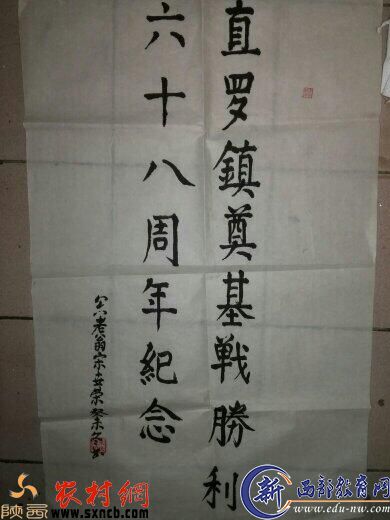 直罗鎮奠基戰勝利
六十八周年紀念
老翁宋世荣癸未冬
陕西
农村網
www.sxncb.com
新
西部教育网
www.edu-nw.com